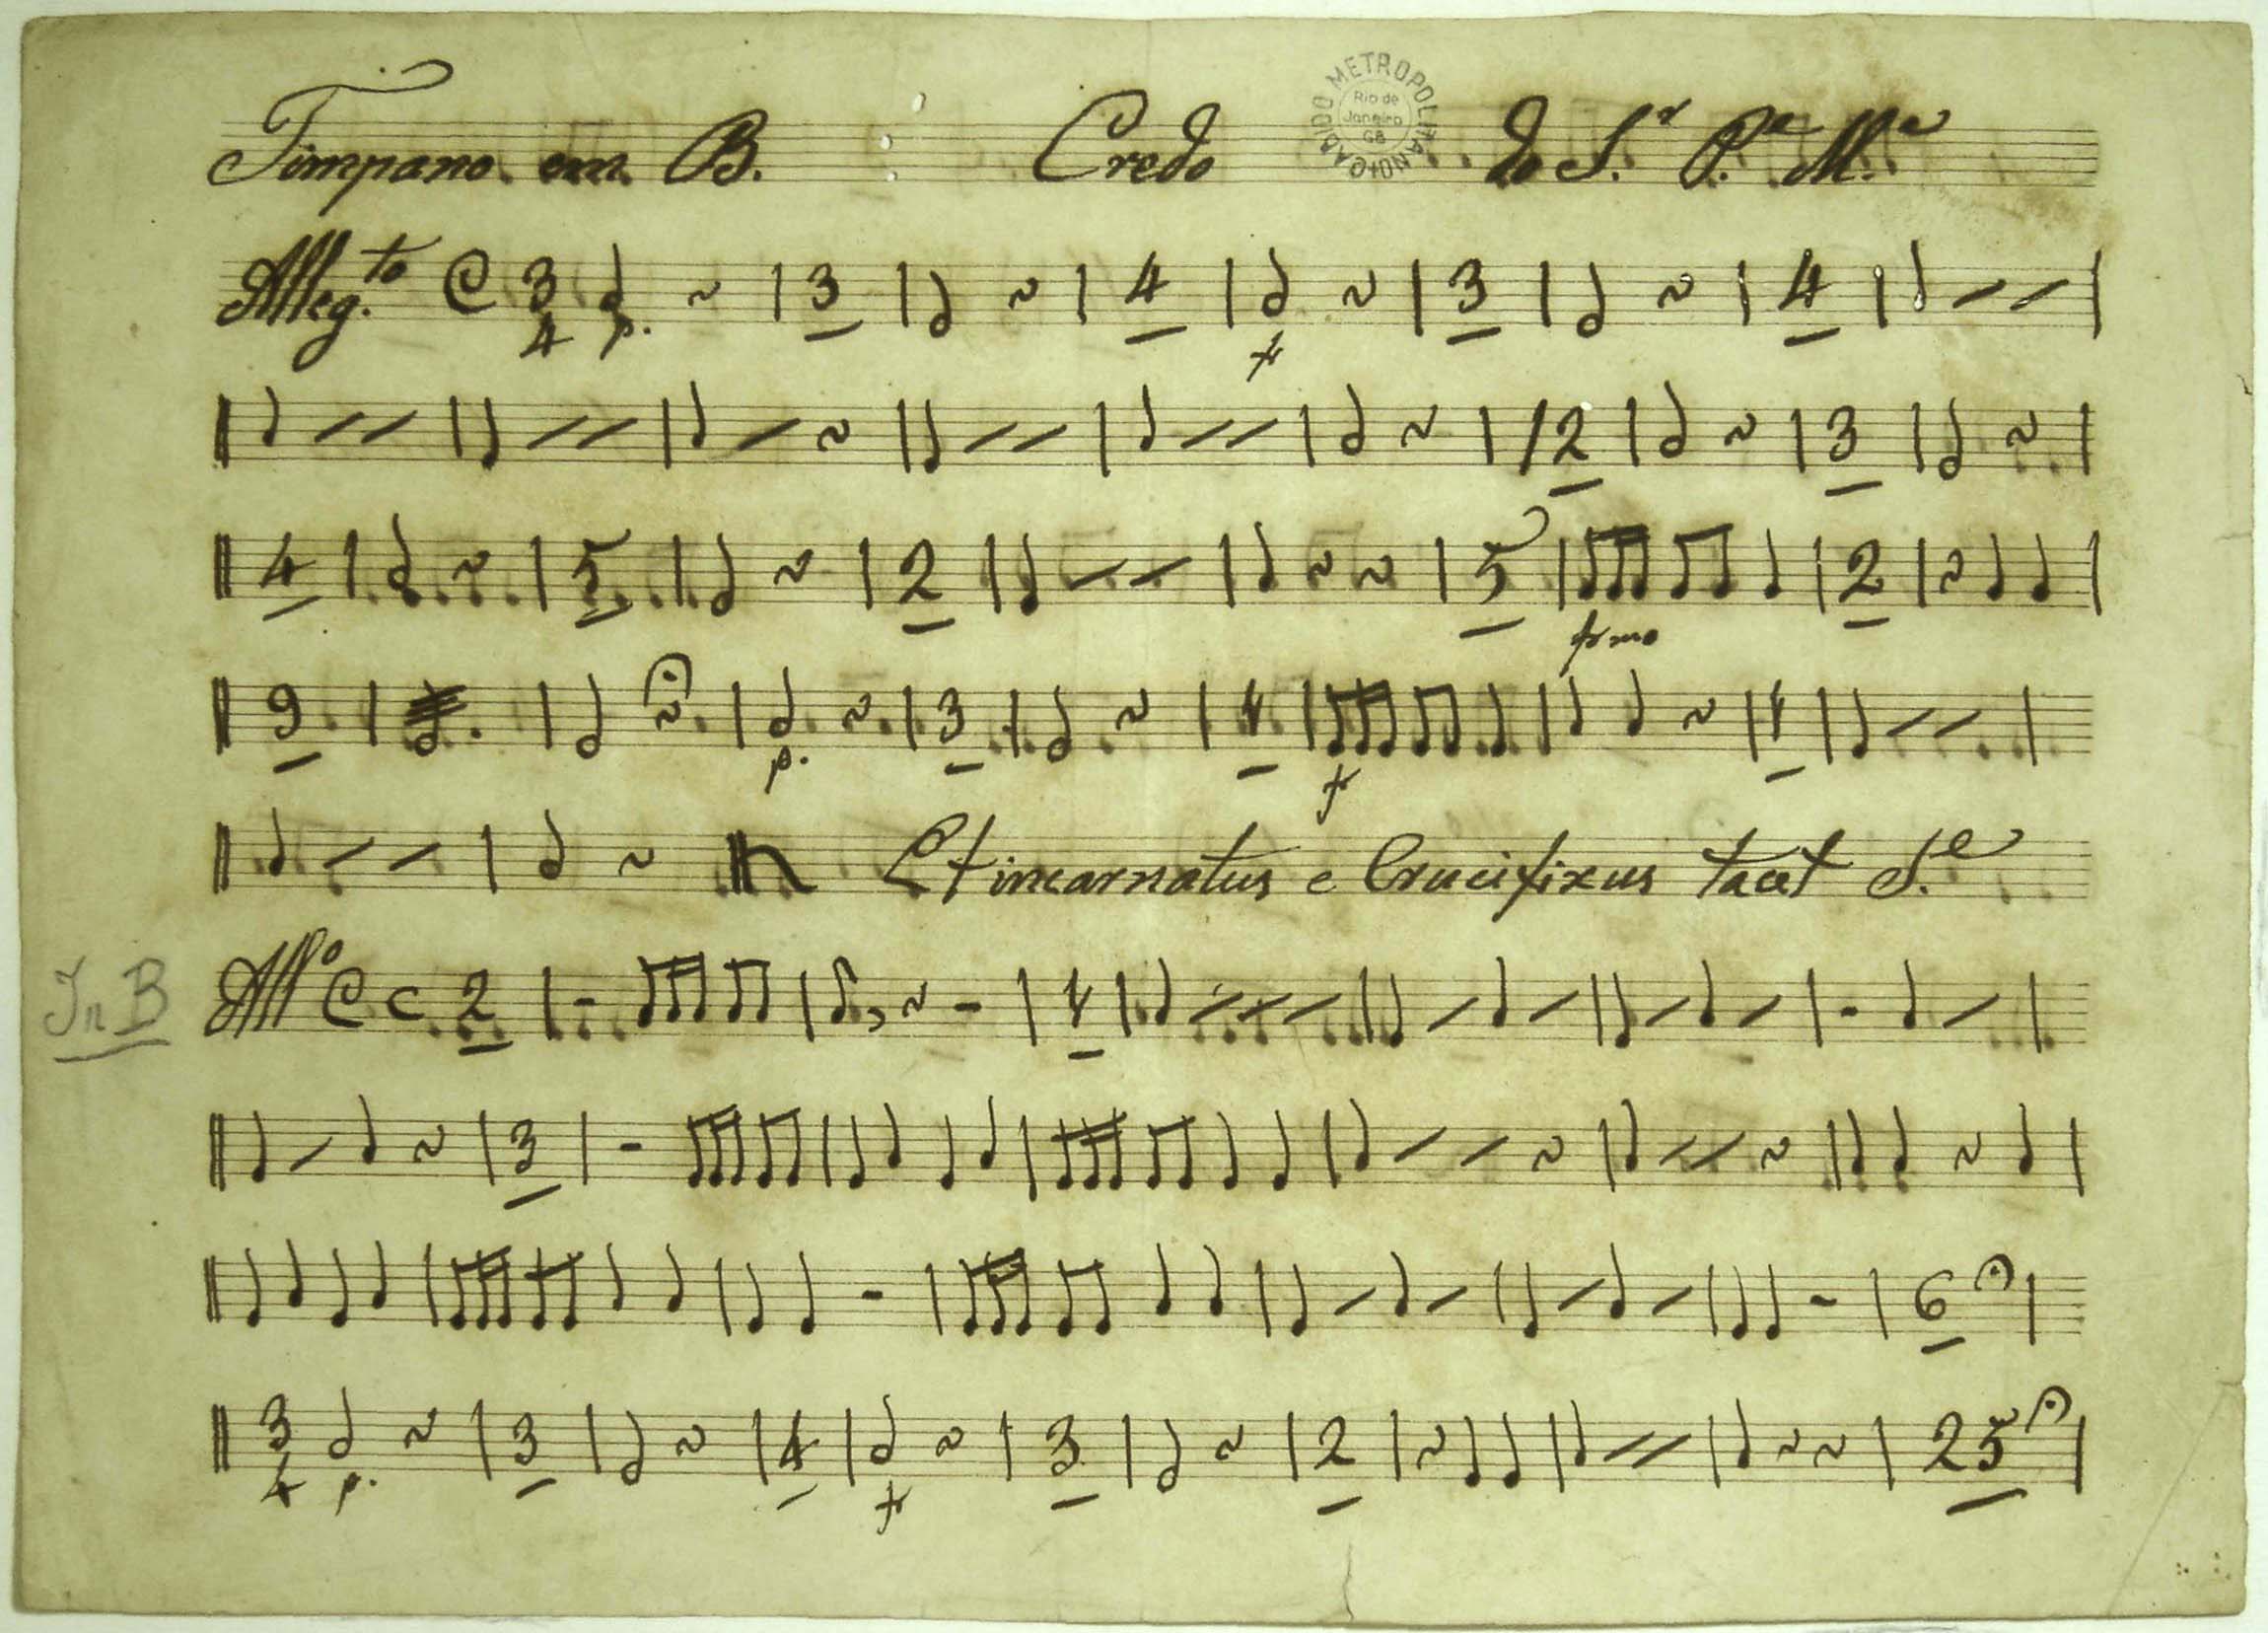 Timpano em B. Credo do S.r P.e M.e
CABIDO METROPOLITANO
Rio de
Janeiro
GB
Alleg.to C 3 3 4 3 4
4 p. f
2 3
4 5 2 5 2
fmo
9 3 4 4
p. f
Et incarnatus e Crucifixus tacet S.e
In B All.o C C 2 4
3
6
3 3 4 3 2 25
4 p. f